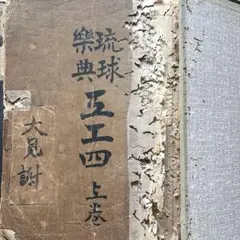 琉球
樂典
工工四
上巻
大見謝